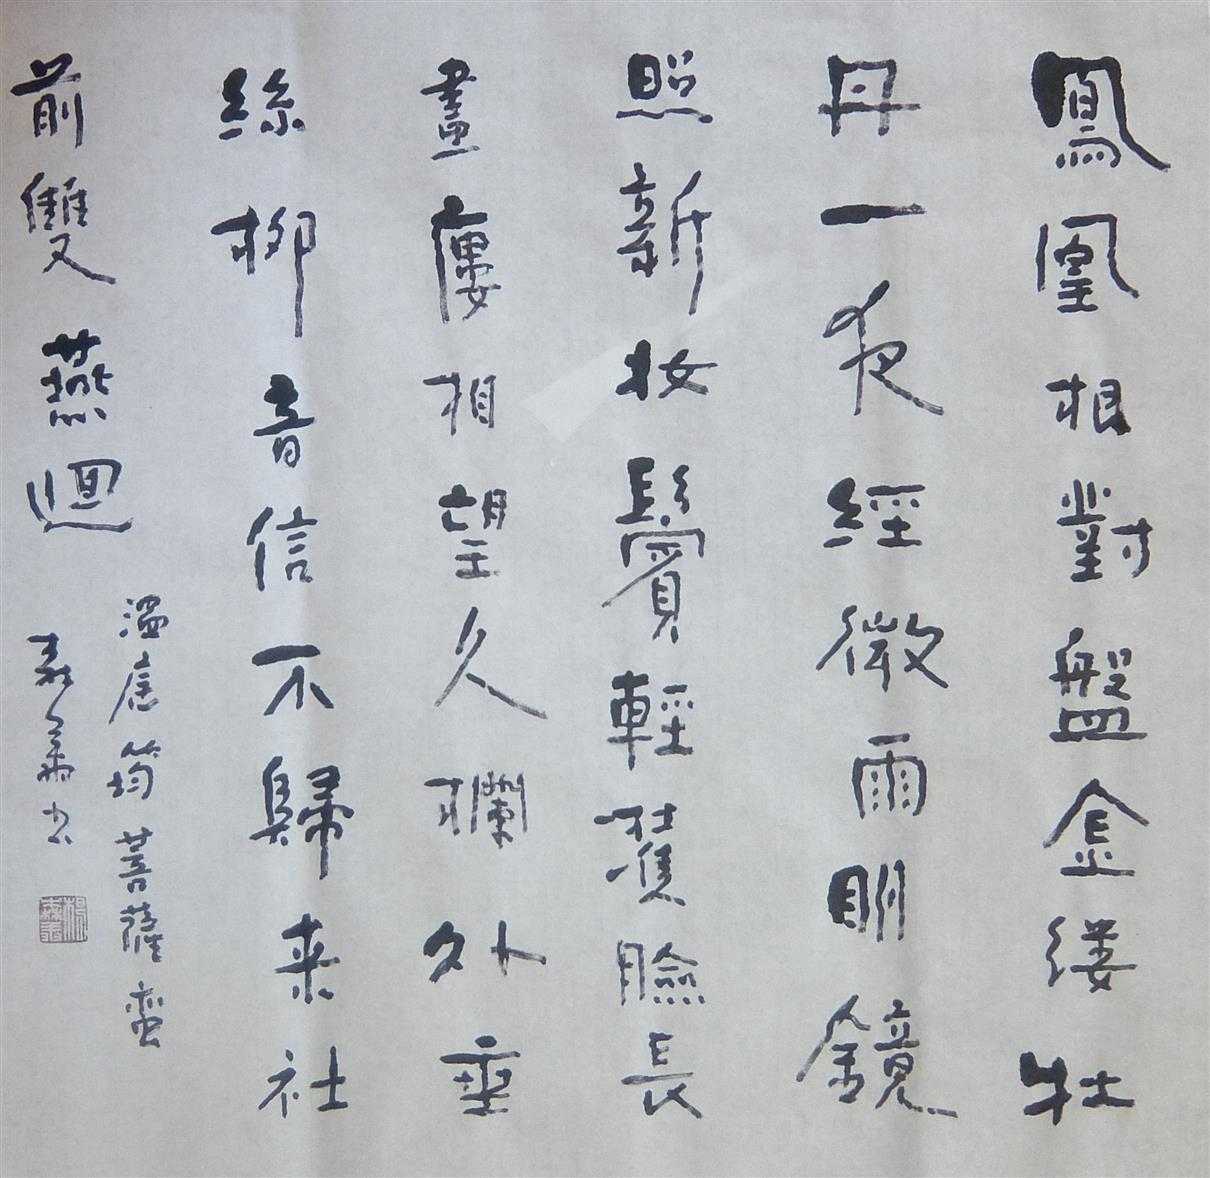 鳳凰根對盤金縷牡
丹一夜經微雨明鏡
照新妝鬢輕雙臉長
畫樓相望久欄外垂
絲柳音信不歸来社
前雙燕迴
溫庭筠菩薩蛮